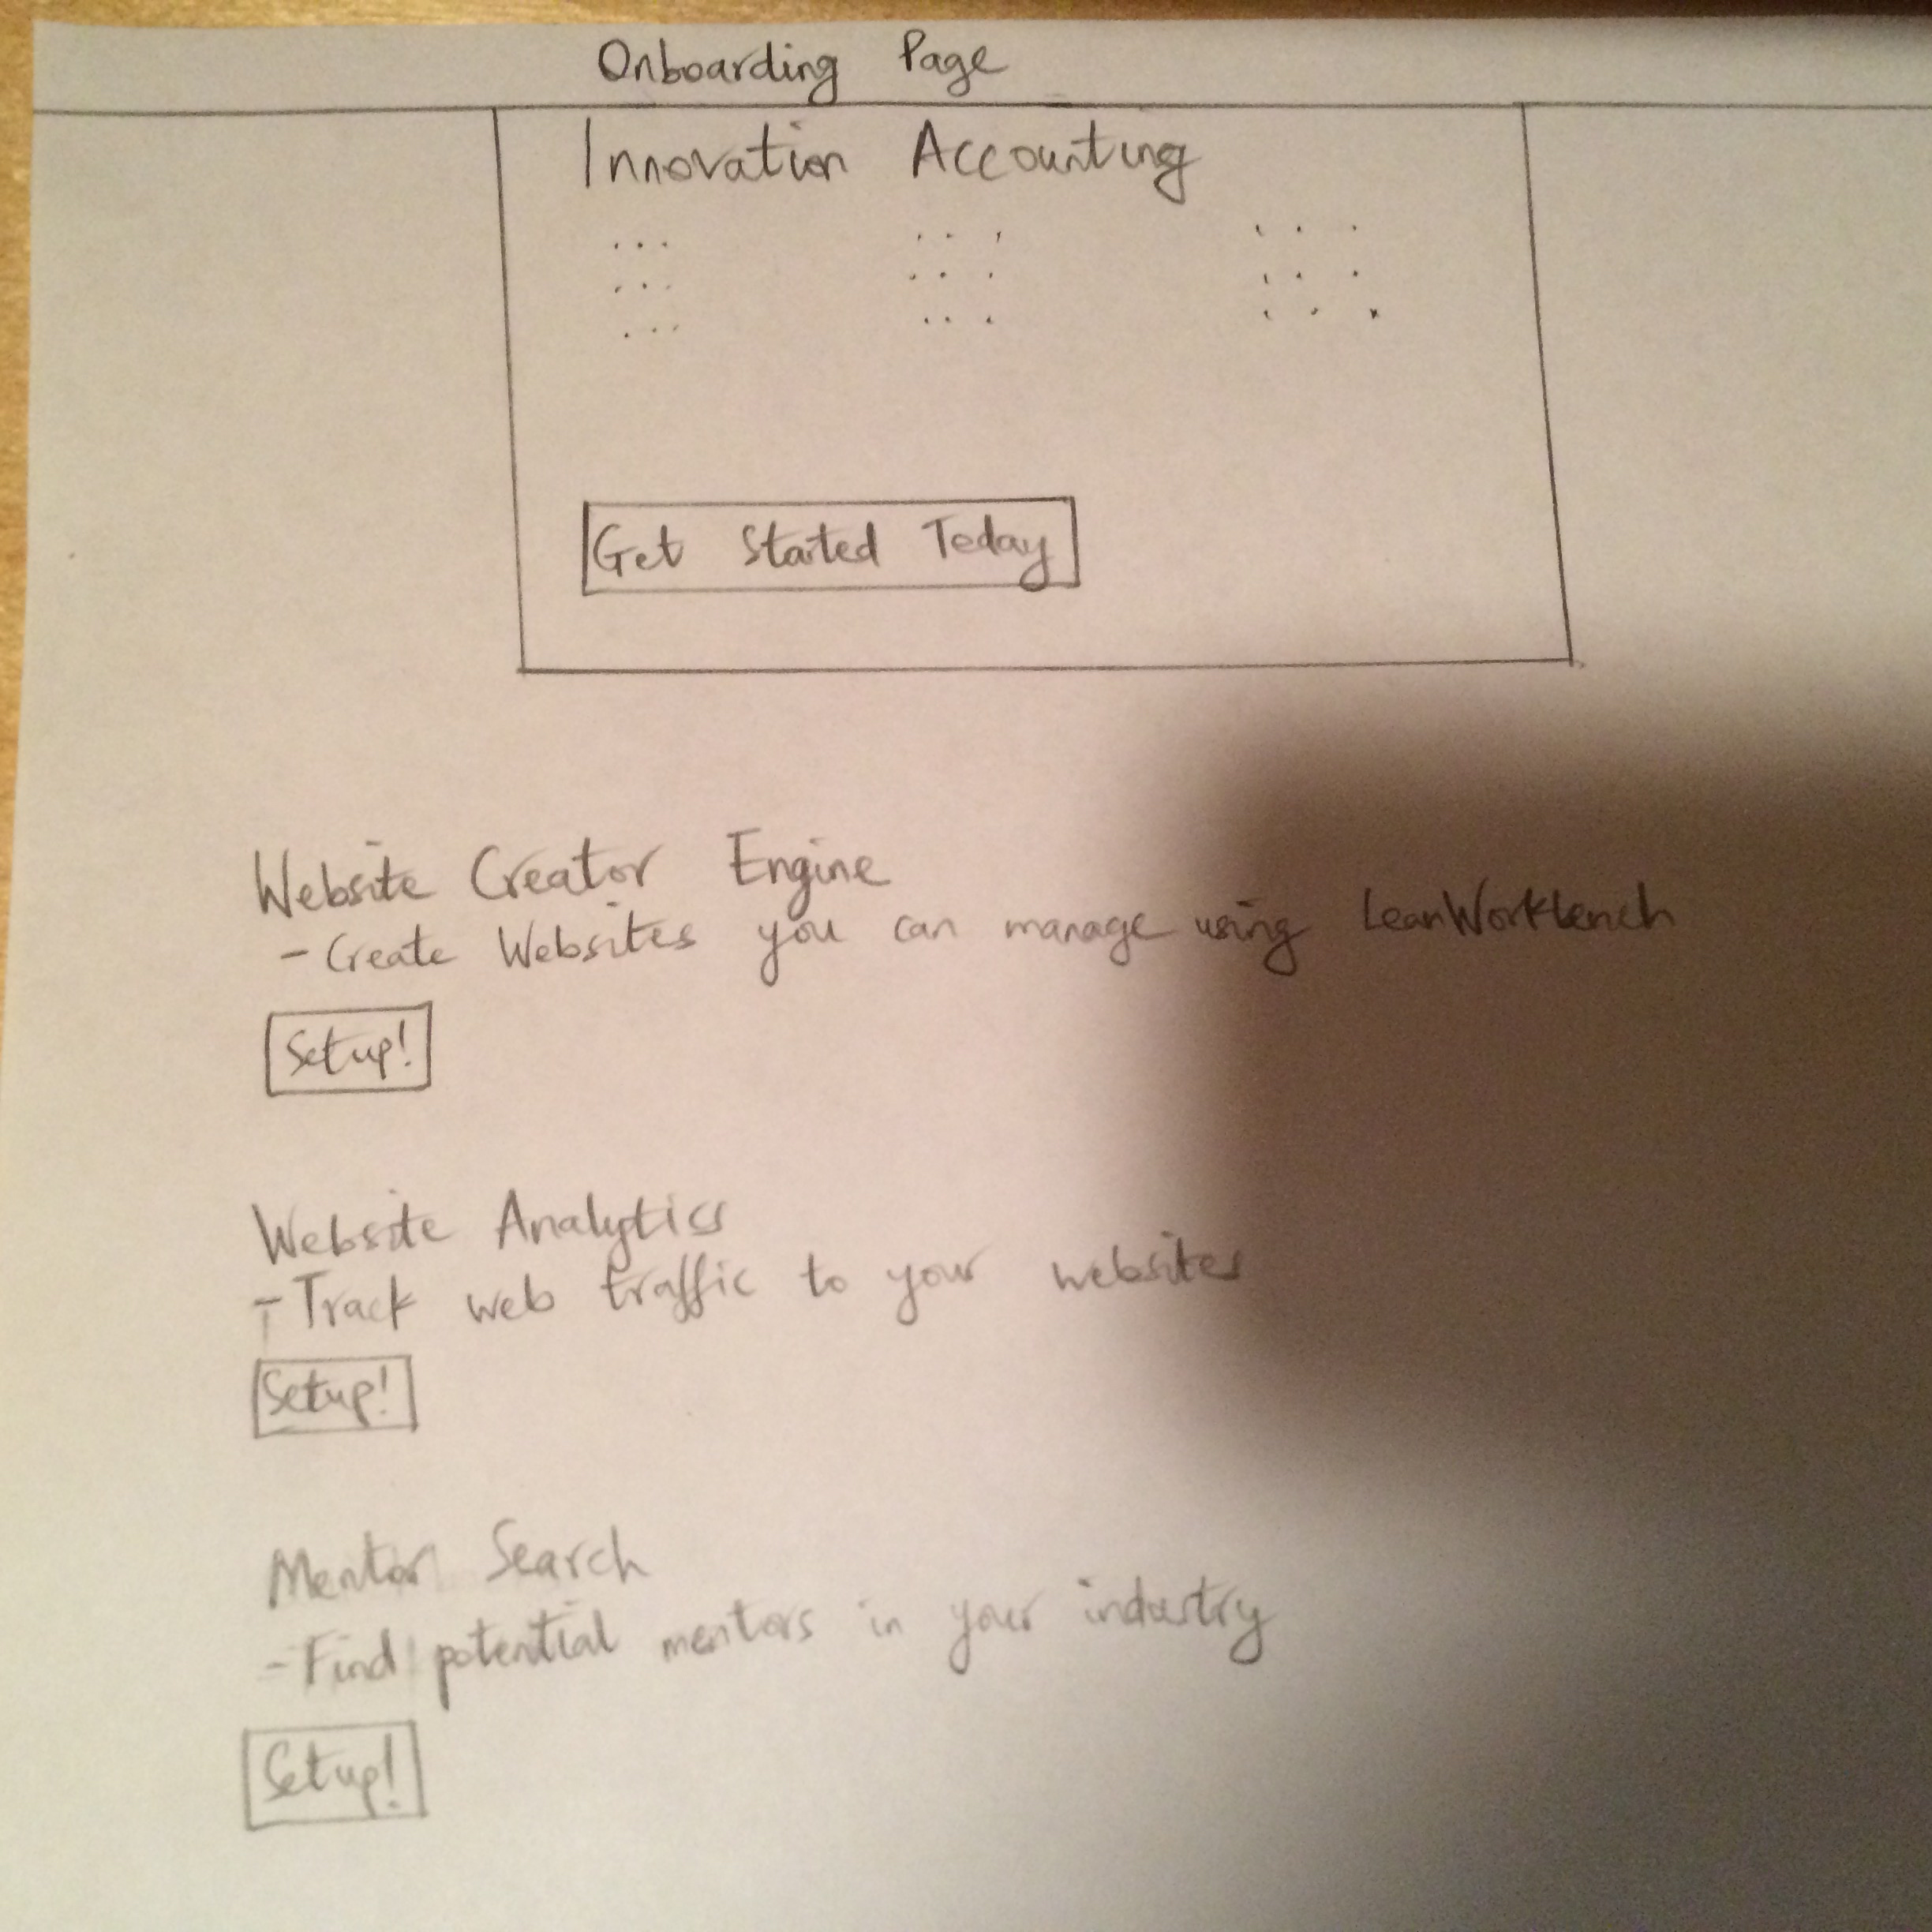 Onboarding Page
Innovation Accounting
... ... ...
... ... ...
... ... ...
Get Started Today
Website Creator Engine
- Create Websites you can manage using LeanWorkbench
Setup!
Website Analytics
- Track web traffic to your websites
Setup!
Mentor Search
- Find potential mentors in your industry
Setup!